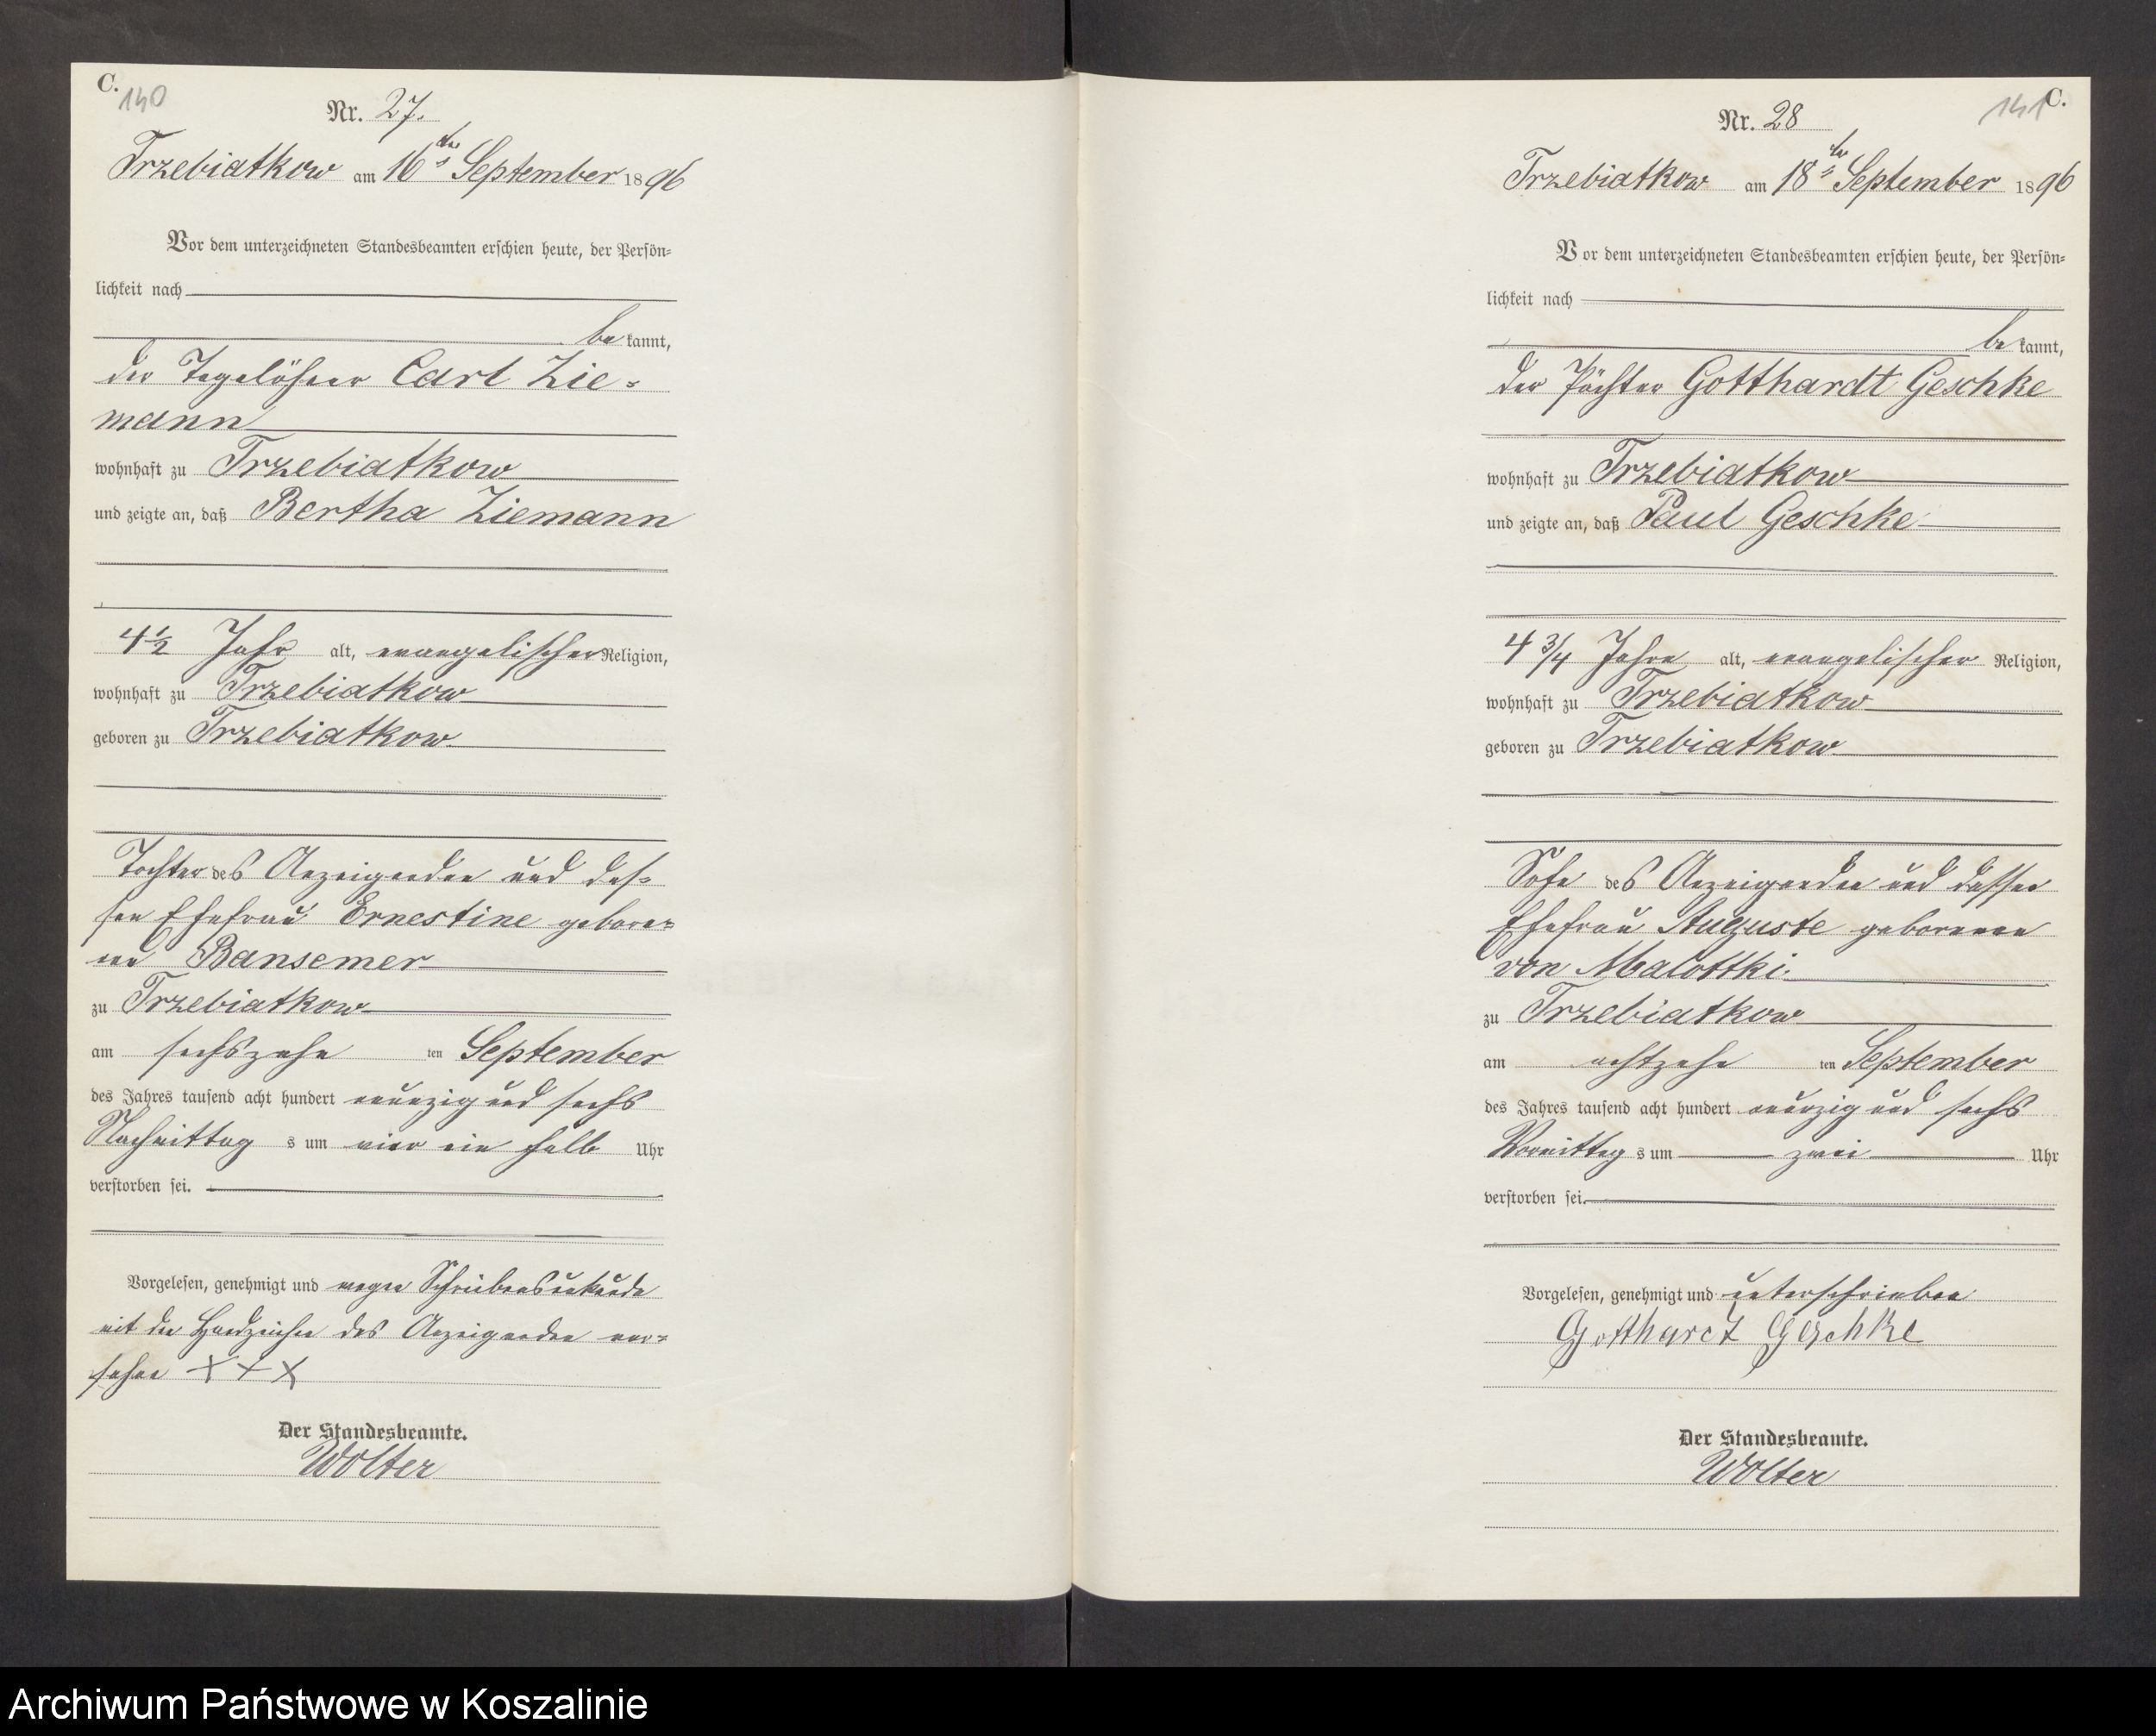 C.
140
Nr. 27.
Trzebiatkow am 16ten September 1896
Vor dem unterzeichneten Standesbeamten erschien heute, der Persön-
lichkeit nach
be kannt,
der Tagelöhner Carl Zie-
mann
wohnhaft zu Trzebiatkow
und zeigte an, daß Bertha Ziemann
4 1/2 Jahr alt, evangelischer Religion,
wohnhaft zu Trzebiatkow
geboren zu Trzebiatkow
Tochter des Anzeigenden und des-
sen Ehefrau Ernestine gebore-
nen Bansemer
zu Trzebiatkow
am sechszehn ten September
des Jahres tausend acht hundert neunzig und sechs
Nachmittag s um vier ein halb Uhr
verstorben sei.
Vorgelesen, genehmigt und wegen Schreibensunkunde
mit den Handzeichen des Anzeigenden ver-
sehen +++
Der Standesbeamte.
Wolter
C.
141
Nr. 28
Trzebiatkow am 18ten September 1896
Vor dem unterzeichneten Standesbeamten erschien heute, der Persön-
lichkeit nach
be kannt,
der Pächter Gotthardt Geschke
wohnhaft zu Trzebiatkow
und zeigte an, daß Paul Geschke
4 3/4 Jahre alt, evangelischer Religion,
wohnhaft zu Trzebiatkow
geboren zu Trzebiatkow
Sohn des Anzeigenden und dessen
Ehefrau Auguste geborenen
von Malottki
zu Trzebiatkow
am achtzehn ten September
des Jahres tausend acht hundert neunzig und sechs
Vormittag s um zwei Uhr
verstorben sei.
Vorgelesen, genehmigt und unterschrieben
Gotthardt Geschke
Der Standesbeamte.
Wolter
Archiwum Państwowe w Koszalinie